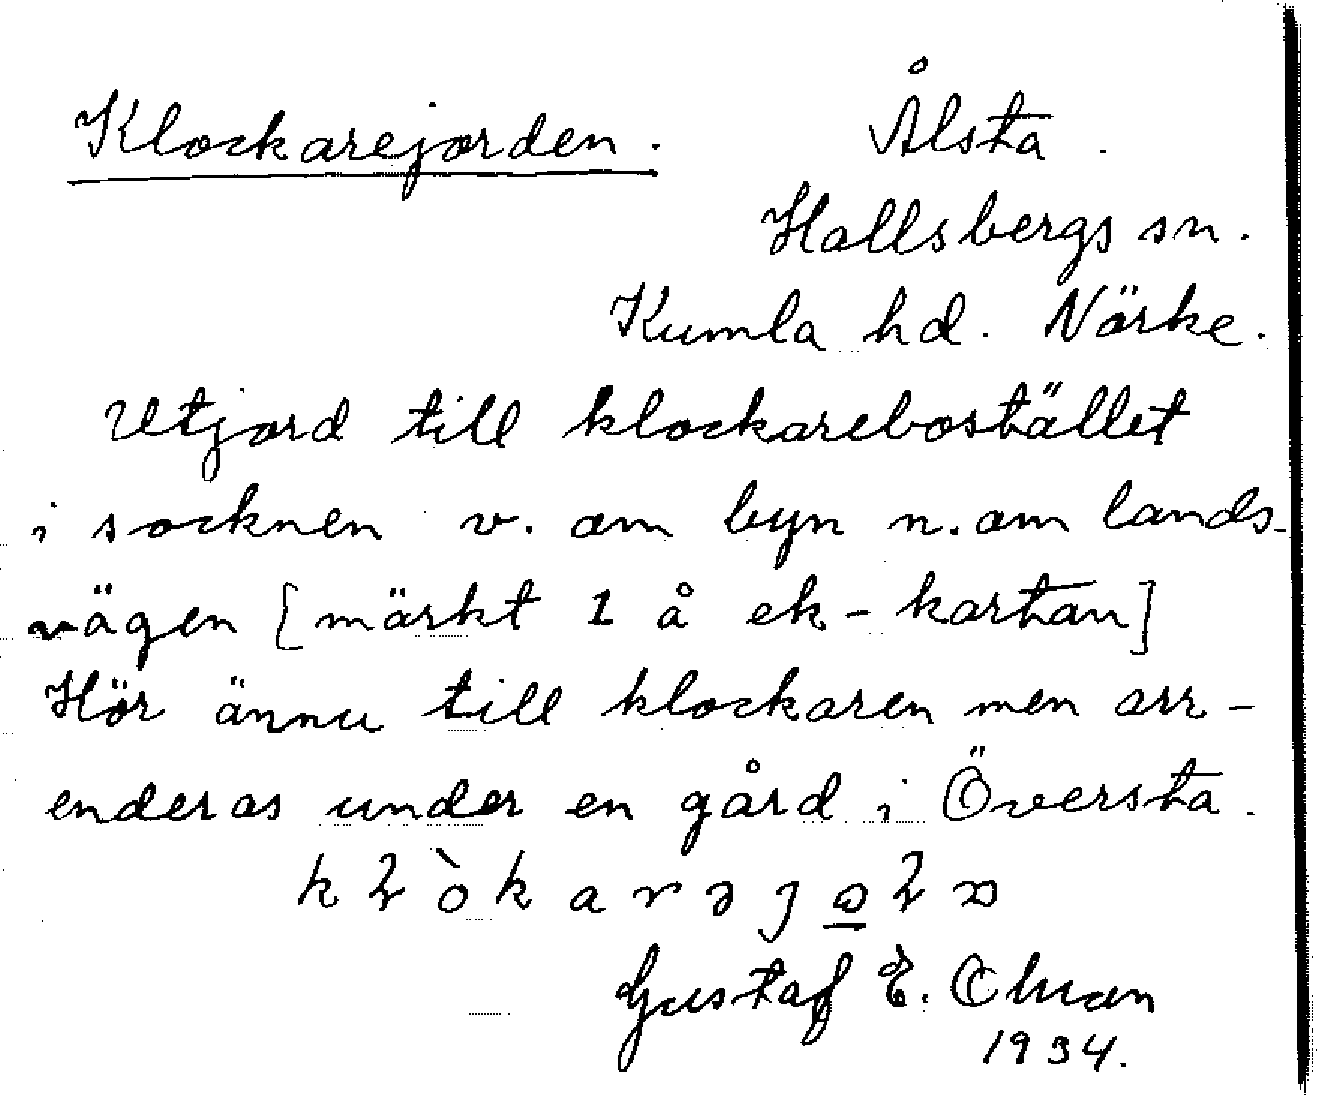 Klockarejorden.
Ålsta.
Hallsbergs sn.
Kumla hd. Närke.
Utjord till klockarebostället
i socknen v. om byn n. om lands-
vägen [märkt 1 å ek-kartan]
Hör ännu till klockaren men arr-
enderas under en gård i Översta.
Gustaf E.
1934.